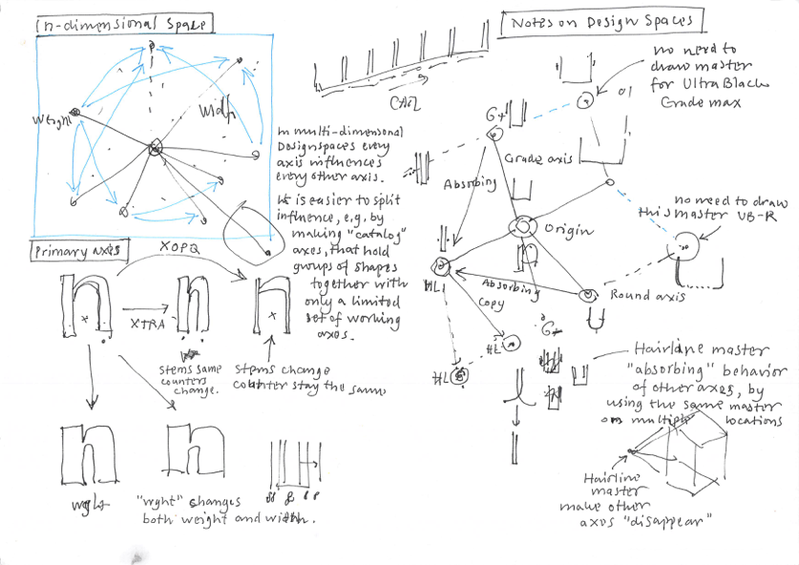 n-dimensional Space
Weight
Width
In multi-dimensional
Designspaces every
axis influences
every other axis.
It is easier to split
influence, e.g. by
making "catalog"
axes, that hold
groups of shapes
together with
only a limited
set of working
axes.
Primary Axes
XOPQ
n
n
n
XTRA
Stems same
counters
change.
Stems change
counter stay the same
n
n
wght
"wght" changes
both weight and width.
Notes on Design Spaces
no need to
draw master
for UltraBlack
Grade max
G+
Grade axis
Absorbing
Origin
no need to draw
this master UB-R
HL
Absorbing
Copy
Round axis
HL
HL
G+
Hairline master
"absorbing" behavior
of other axes, by
using the same master
on multiple locations
Hairline
master
make other
axes "disappear"